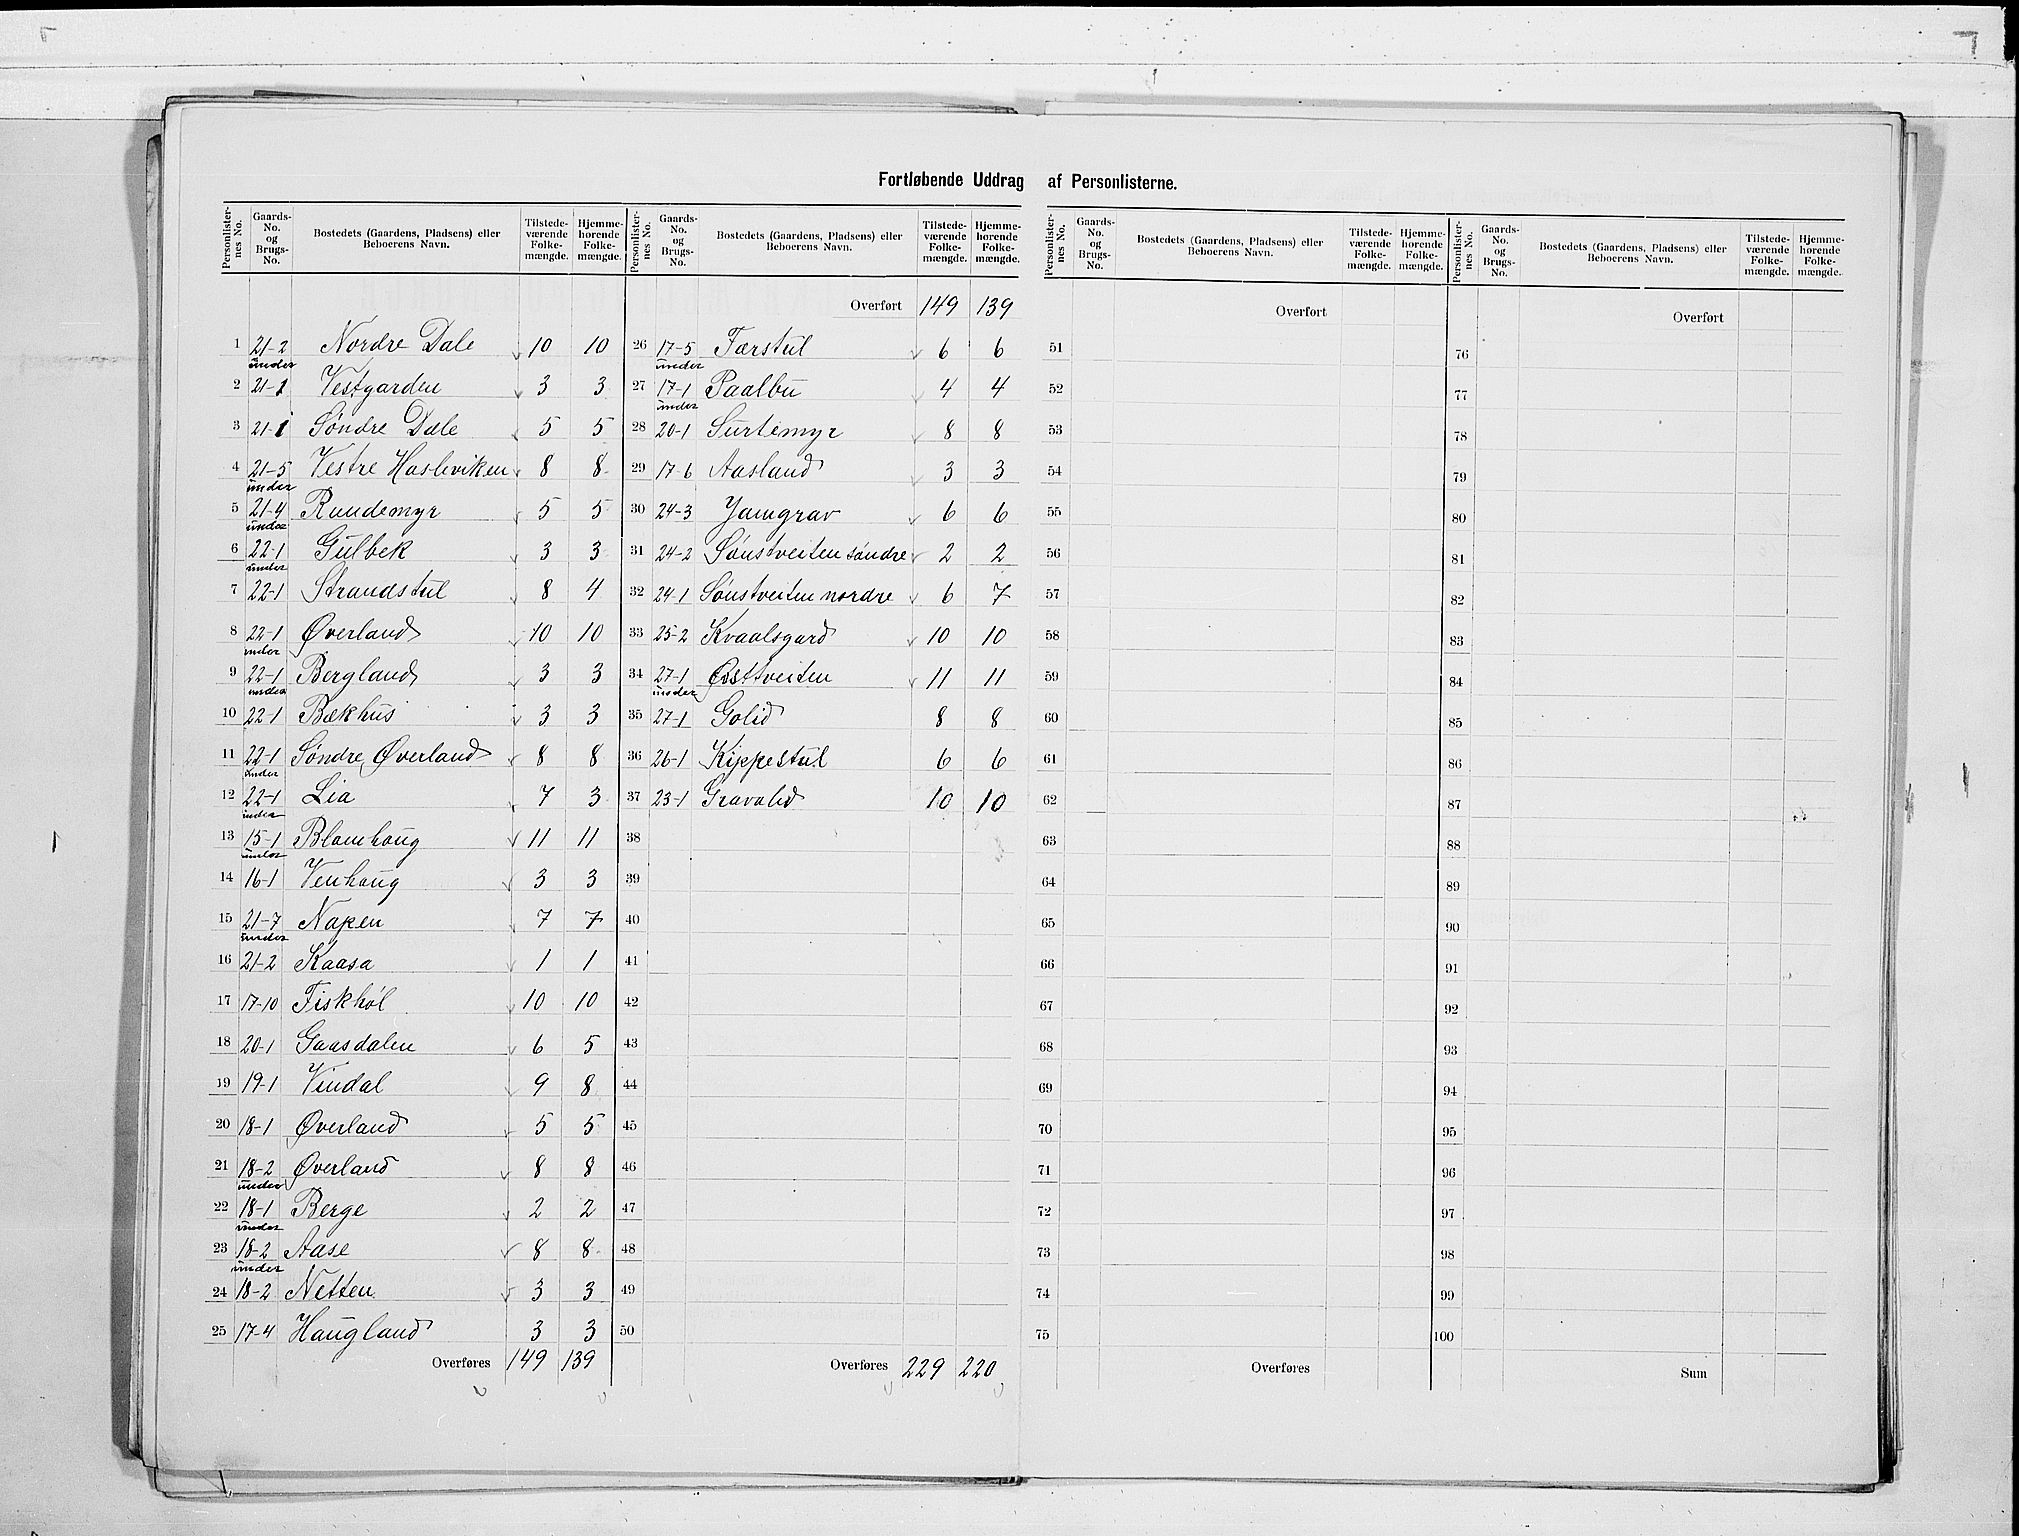 Fortløbende Uddrag af Personlisterne.
Personlisternes No. Gaards-No. og Brugs-No. Bostedets (Gaardens, Pladsens) eller Beboerens Navn. Tilstedeværende Folkemængde. Hjemmehörende Folkemængde.
1 21-2 Nordre Dale 10 10
under
2 21-1 Vestgarden 3 3
3 21-1 Søndre Dale 5 5
4 21-5 Vestre Hasleviken 8 8
under
5 21-4 Rundemyr 5 5
under
6 22-1 Gulbek 3 3
under
7 22-1 Strandstul 8 4
8 22-1 Øverland 10 10
under
9 22-1 Bergland 3 3
under
10 22-1 Bækhus 3 3
11 22-1 Søndre Øverland 8 8
under
12 22-1 Lia 7 3
under
13 15-1 Blomhaug 11 11
under
14 16-1 Venhaug 3 3
15 21-7 Napen 7 7
under
16 21-2 Kaasa 1 1
17 17-10 Fiskhøl 10 10
18 20-1 Gaasdalen 6 5
19 19-1 Vindal 9 8
20 18-1 Øverland 5 5
21 18-2 Øverland 8 8
under
22 18-1 Berge 2 2
under
23 18-2 Aase 8 8
under
24 18-2 Netten 3 3
25 17-4 Haugland 3 3
Overføres 149 139
Personlisternes No. Gaards-No. og Brugs-No. Bostedets (Gaardens, Pladsens) eller Beboerens Navn. Tilstedeværende Folkemængde. Hjemmehörende Folkemængde.
Overført 149 139
26 17-5 Færstul 6 6
under
27 17-1 Paalbu 4 4
under
28 20-1 Surtemyr 8 8
29 17-6 Aasland 3 3
30 24-3 Jamgrav 6 6
31 24-2 Sønstveiten søndre 2 2
32 24-1 Sønstveiten nordre 6 7
33 25-2 Kvaalsgard 10 10
34 27-1 Østtveiten 11 11
under
35 27-1 Golid 8 8
36 26-1 Kippestul 6 6
37 23-1 Gravalid 10 10
38
39
40
41
42
43
44
45
46
47
48
49
50
Overføres 229 220
Personlisternes No. Gaards-No. og Brugs-No. Bostedets (Gaardens, Pladsens) eller Beboerens Navn. Tilstedeværende Folkemængde. Hjemmehörende Folkemængde.
Overført
51
52
53
54
55
56
57
58
59
60
61
62
63
64
65
66
67
68
69
70
71
72
73
74
75
Overføres
Personlisternes No. Gaards-No. og Brugs-No. Bostedets (Gaardens, Pladsens) eller Beboerens Navn. Tilstedeværende Folkemængde. Hjemmehörende Folkemængde.
Overført
76
77
78
79
80
81
82
83
84
85
86
87
88
89
90
91
92
93
94
95
96
97
98
99
100
Sum